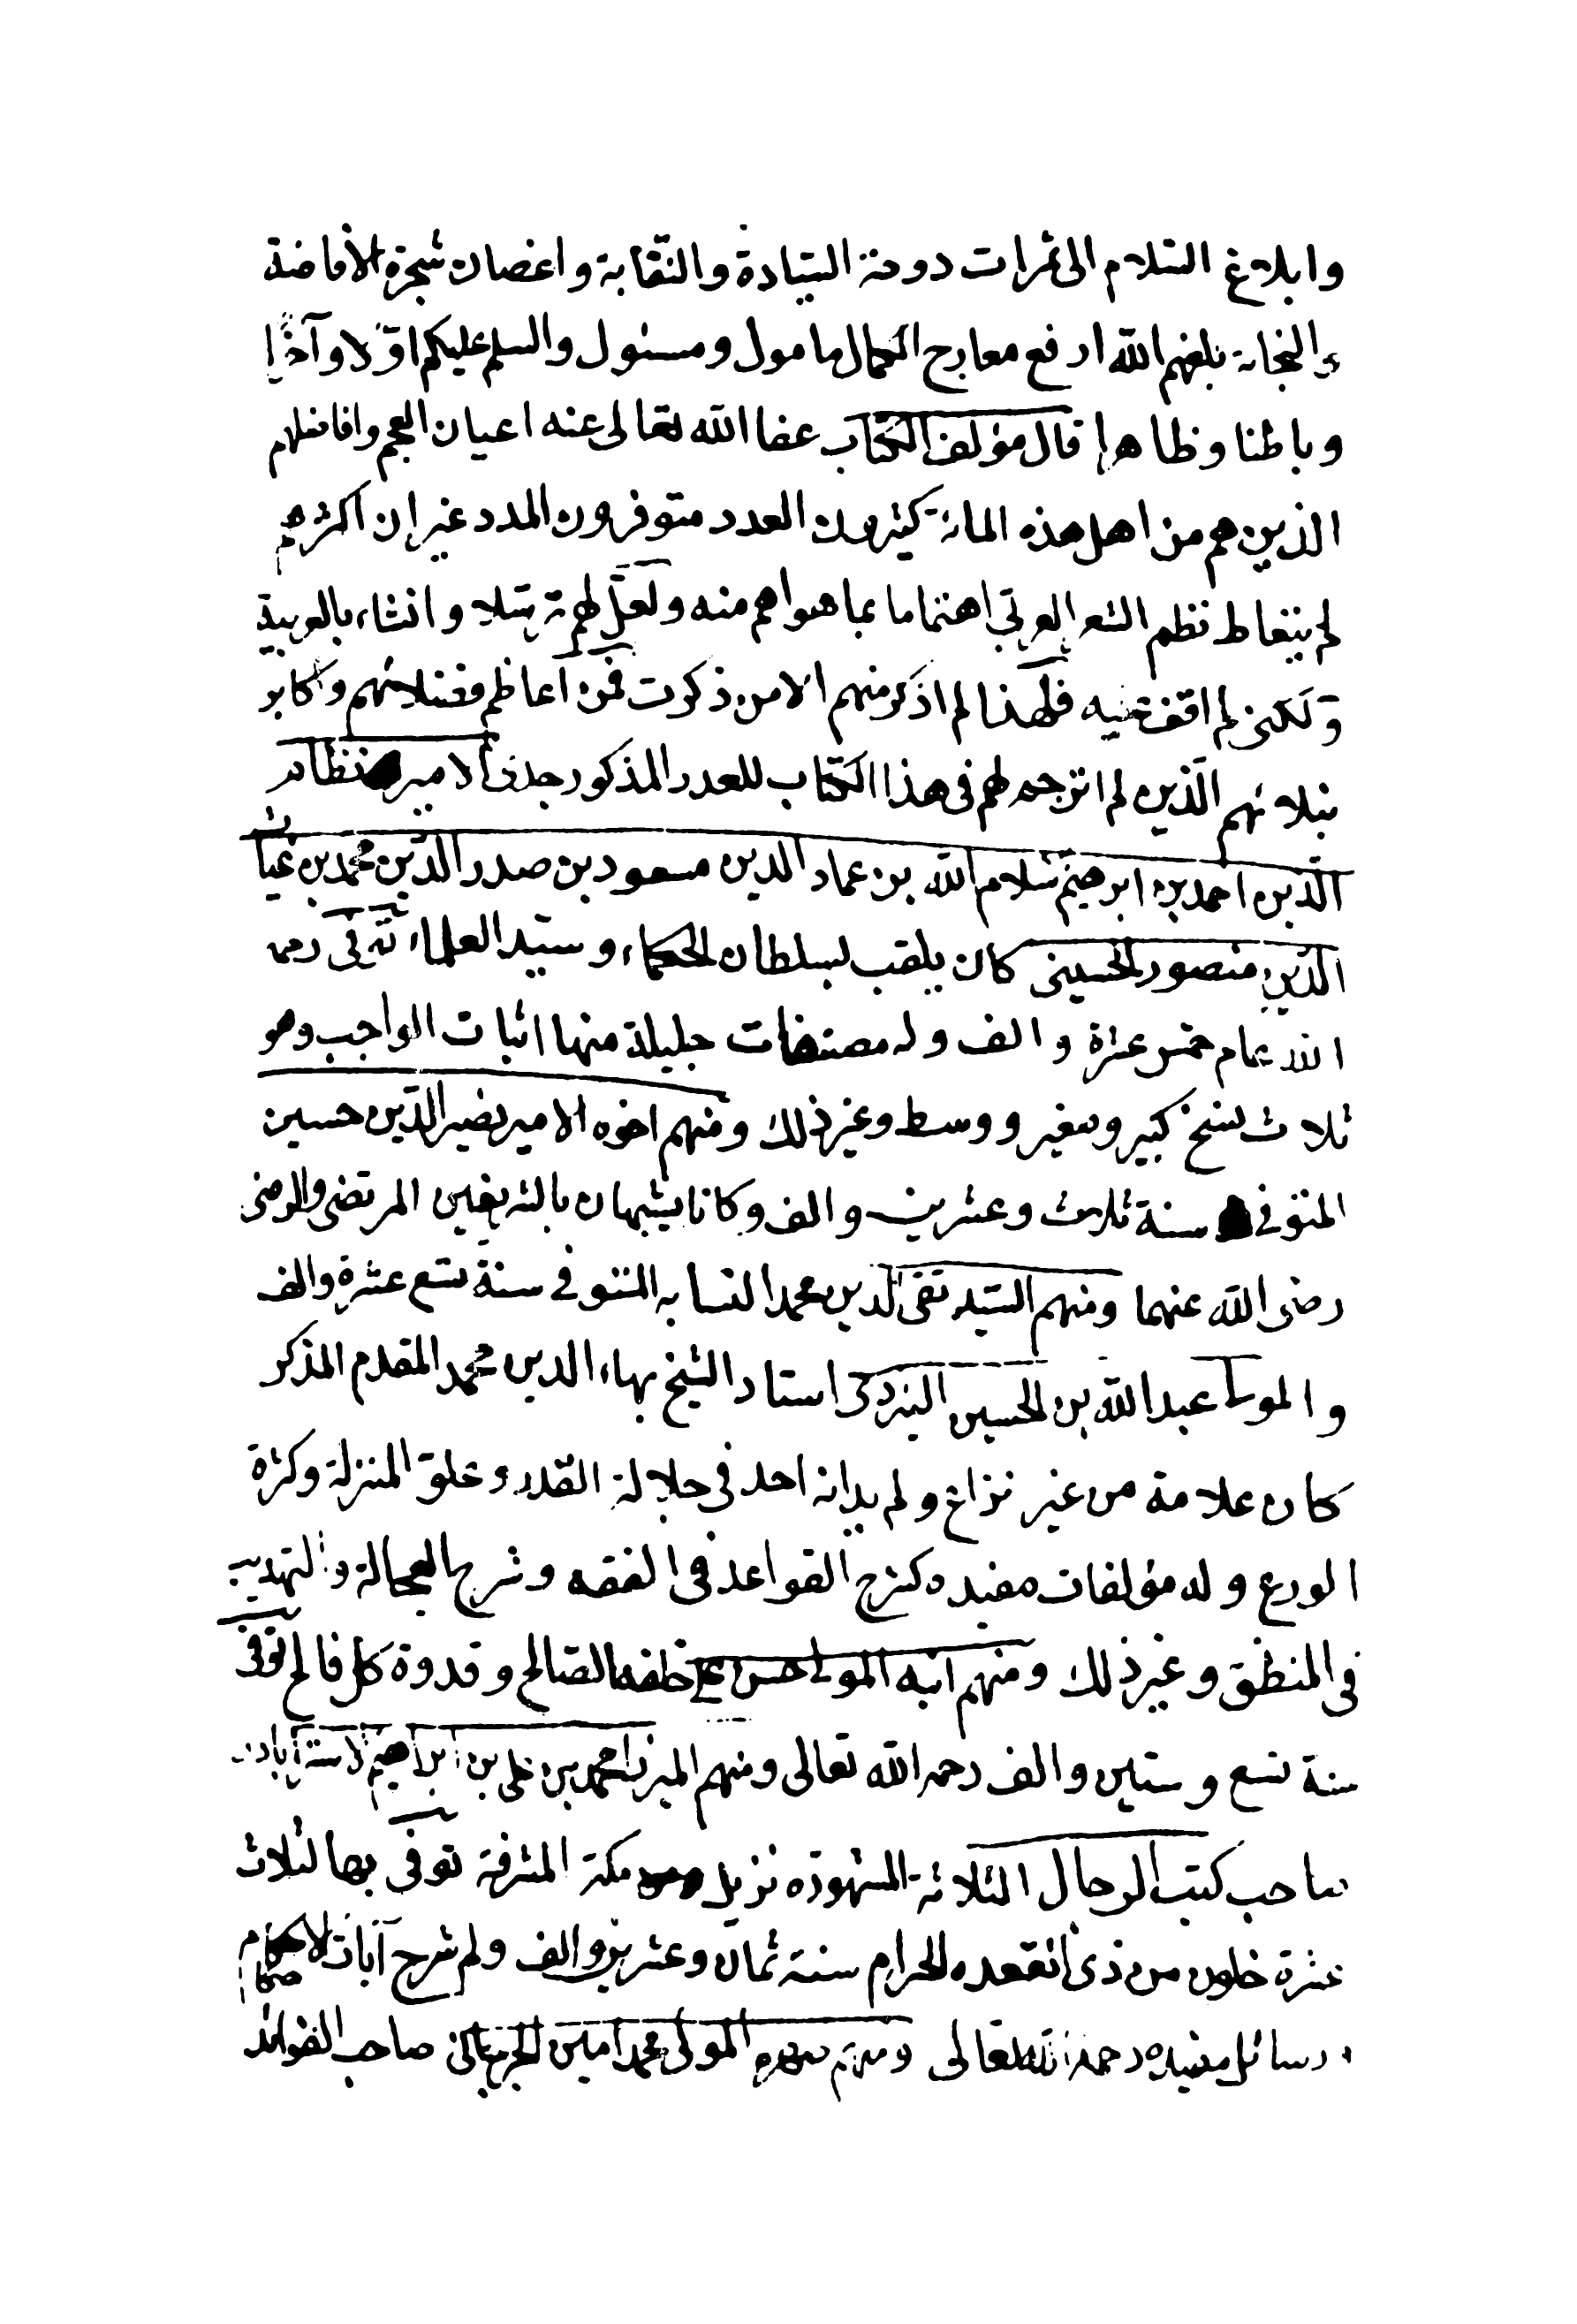 وابلاغ السّلام الى ثمرات دوحة السّيادة والنّقابة واغصان شجرة الافاضة
والنجابة بلغهم الله ارفع معارج الكمال مامول ومسئول والسلم عليكم اوّلا وآخرًا
وباطنا وظاهرا قال مؤلف الكتاب عفا الله تعالى عنه اعيان العجم وافاضلهم
الذين هم من اهل هذه المائة كثيرون العدد متوفرون المدد غير ان اكثرهم
لم يتعاط نظم الشعر العربي اهتماما بما هو اهم منه ولعلّ لهم ترسّلا وانشاء بالعربية
ولكنى لم اقف عليه فلهذا لم اذكر منهم الا من ذكرت فمن اعاظم فضلائهم واكابر
نبلائهم الّذين لم اترجم لهم فى هذا الكتاب للعدر المذكور جدنى الامير نظام
الدّين احمد بن ابرهيم سلام الله بن عماد الدين مسعود بن صدر الدّين محمد بن غياث
الدّين منصور الحسينى كان يلقب بسلطان الحكماء وسيّد العلماء توفى رحمه
الله عام خمس عشرة والف وله مصنفات جليلة منها اثبات الواجب وهو
ثلاث نسخ كبير وصغير ووسط وغير ذلك ومنهم اخوه الامير نصير الدّين حسين
المتوفى سنة ثلاث وعشرين والف وكانا يشبهان بالشريفين المرتضى والرضى
رضى الله عنهما ومنهم السّيد تقى الدين محمد النسابه المتوفى سنة تسع عشرة والف
والمولى عبد الله بن الحسين اليزدى استاد الشيخ بهاء الدين محمد المقدم الذكر
كان علامة من غير نزاع ولم يدانه احد فى جلالة القدر وعلوّ المنزلة وكثرة
الورع وله مؤلفات مفيده كشرح القواعد فى الفقه وشرح العجالة والتهذيب
فى المنطق وغير ذلك ومنهم ابنه المولى حسن على خلفه الصالح وقدوة كل فالح توفى
سنة تسع وستين والف رحمه الله تعالى ومنهم الميرزا محمد بن على بن ابراهيم الاسترابادى
صاحب كتب الرجال الثلاثة المشهوره نزيل مكة المشرفة توفى بها لثلاث
عشرة خلون من ذى القعده الحرام سنة ثمان وعشرين والف وله شرح آيات الاحكام
ورسائل مفيده رحمه الله تعالى ومنهم المولى محمد امين الجرجانى صاحب الفوائد